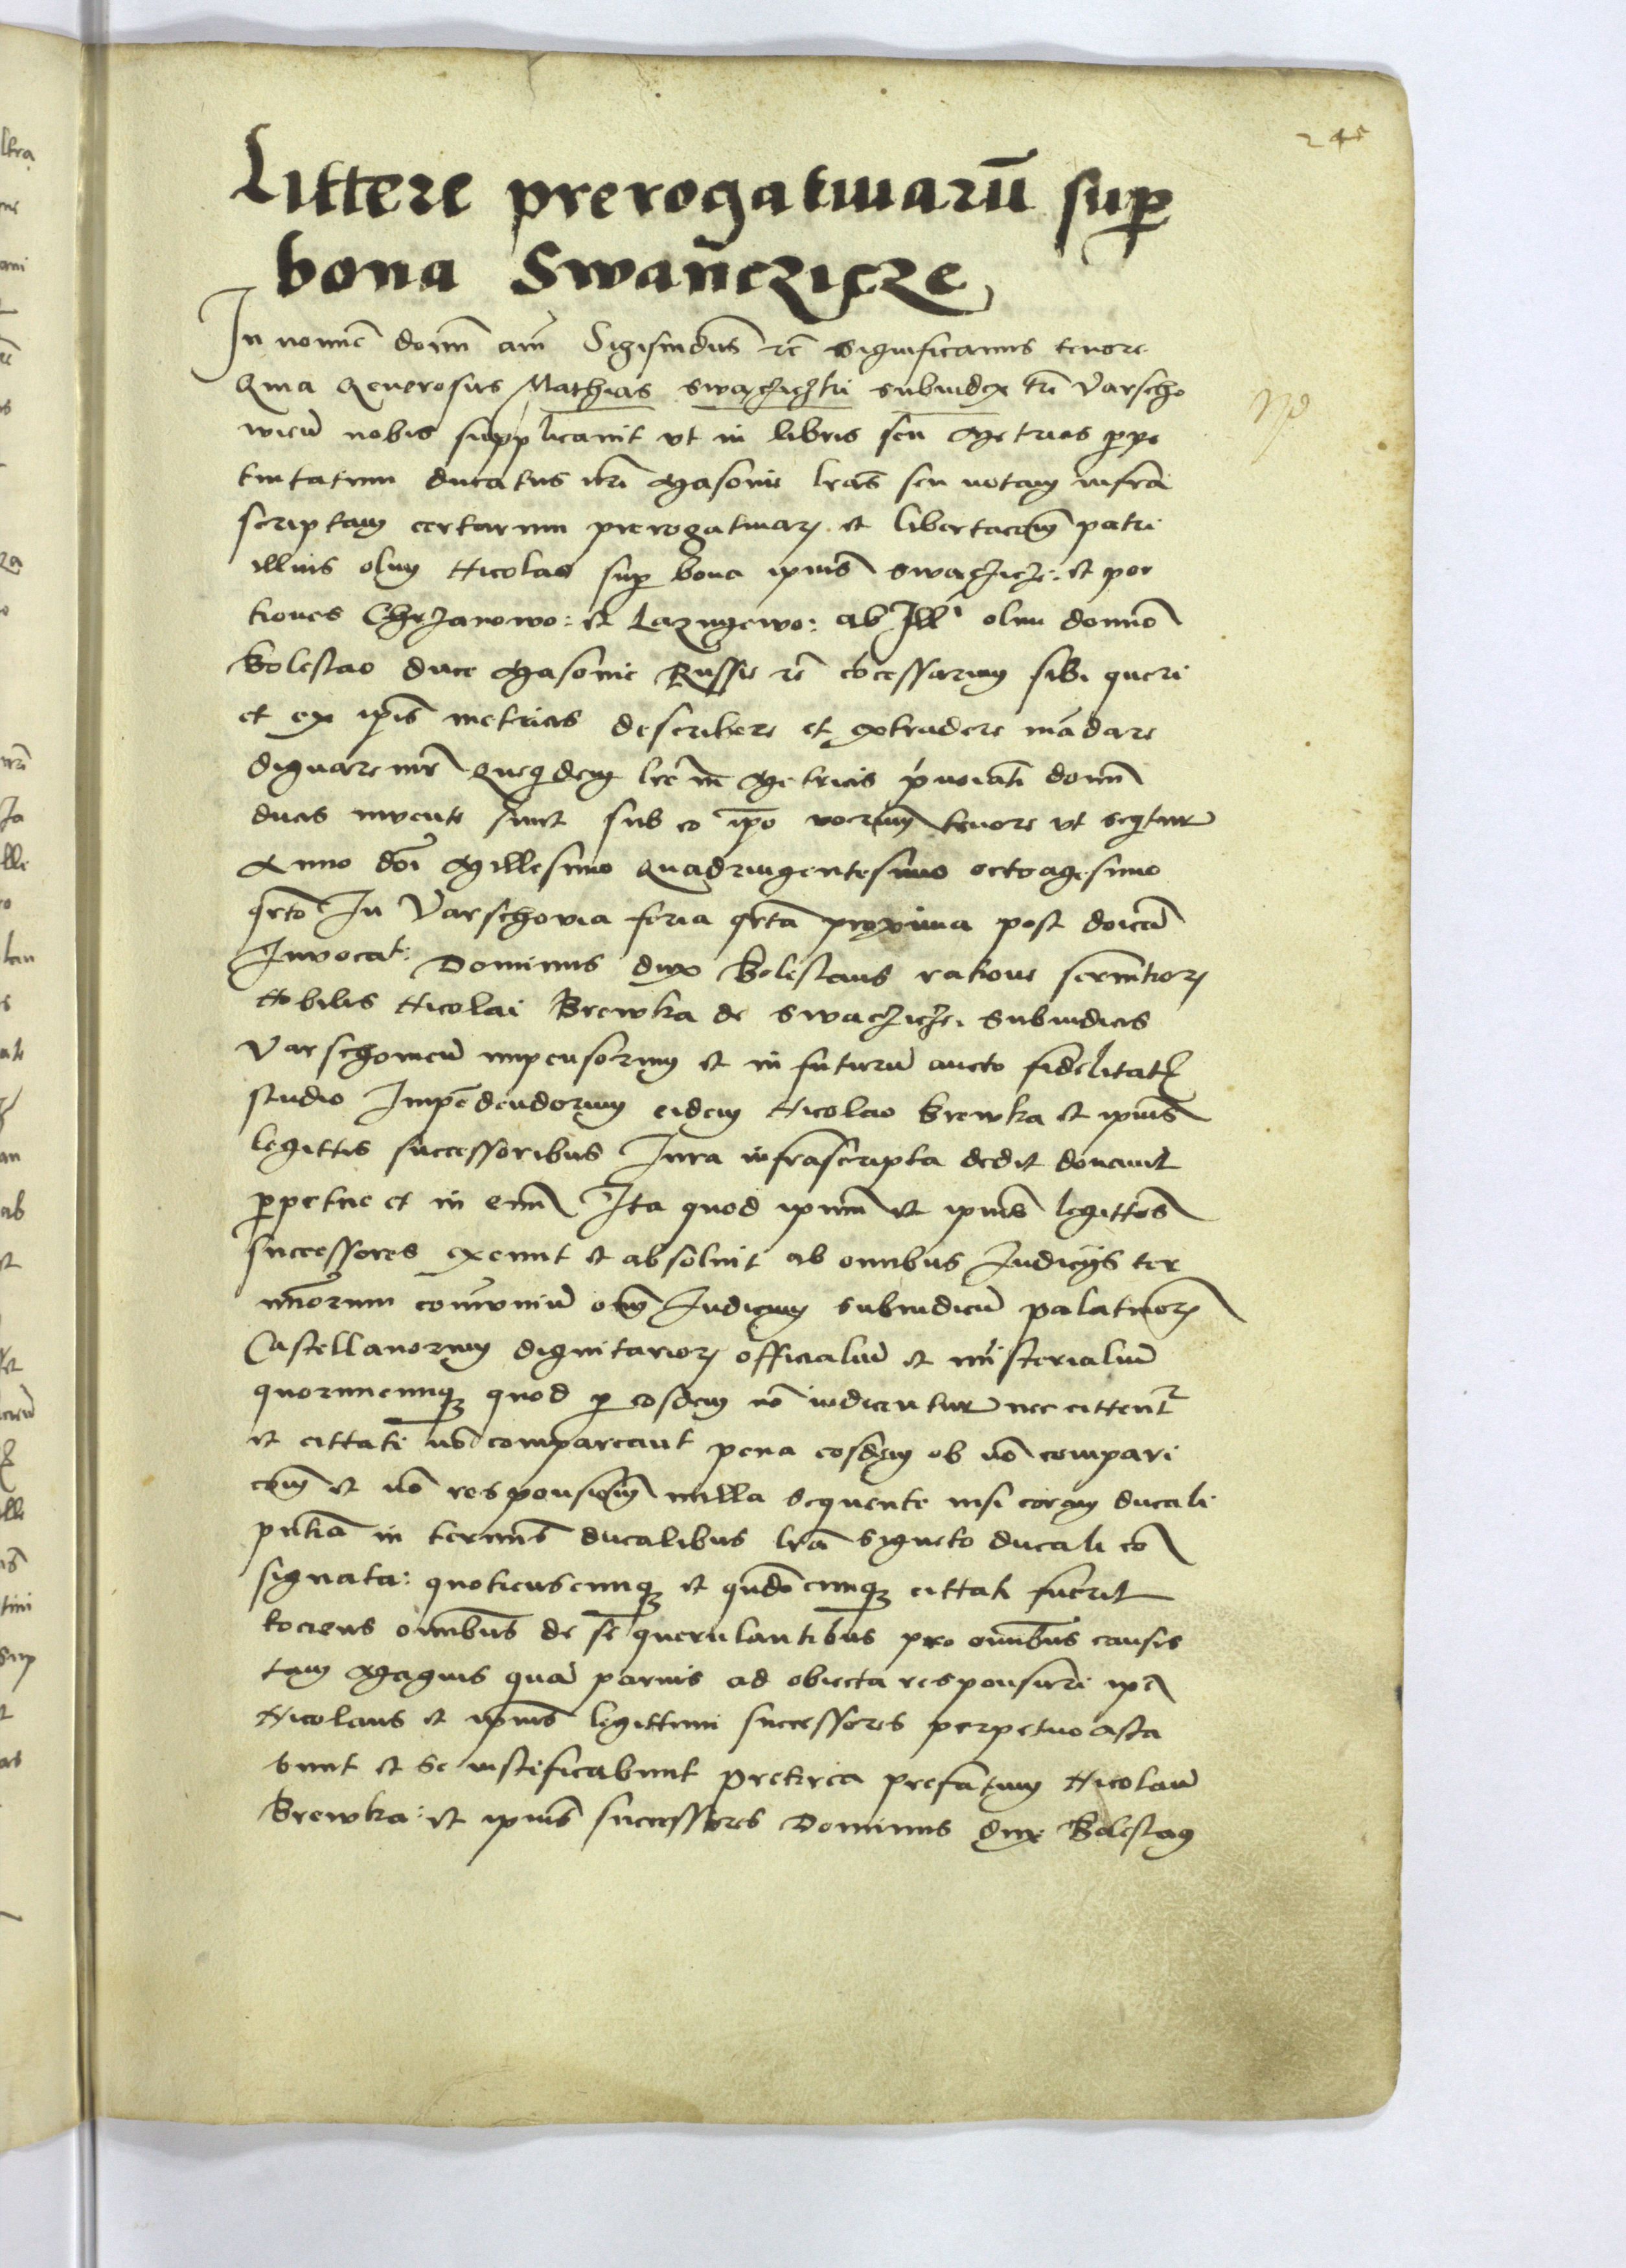 245
Littere prerogatiuarū sup
bona Swan̄czicze
In nomīe domī amē Sigismdus rc̄ significamus tenore
Quia Generosus Mathias swacziczki subiudex trē Varscho
wieñ nobis supplicauit vt in libris seu Metrices ppe
tuitatum ducatus nr̄i Masouie lr̄as seu notam infra
scriptam certarum prerogatiuarȝ et libertacom̄ patri
illius olim Nicolao sup bona ipius swaczicze: et por
tiones Chrzanowo: et Lazngewo: ab Ill' olim domīo
Boleslao duce Masouie Russie rc̄ cōcessarum sibi queri
et ex ip̄is metricis describere et extradere mādare
dignaremr̄ Queqdem lr̄e in Metricis p̄noīati domī
ducis inuente sunt sub eo ip̄o verborum tenore vt seqitur
Anno dn̄i Millesimo quadringentesimo octoagesimo
qrto In Varschouia feria qrta proxima post doīcā
Inuocat: Dominus dux Boleslaus ratione seruitiorȝ
Nobilis Nicolai Brewka de swaczicze: subiudicis
Varschouieñ impensorum et in futurū aucto fidelitatȝ
studio Impēdendorum eidem Nicolao Brewka et ipius
legittis successoribus Iura infrascripta dedit donauit
ppetue et in euū Ita quod ipsum et ipius legittos
successores exemit et absoluit ab omnibus Iudicijs ter
minorum comuniū oīm Iudicum subiudicū palatinorȝ
Castellanorum dignitariorȝ officialiū et ministerialiū
quorumcunqȝ quod p eosdem nō iudicentur nec cittentr
et cittati nō compareant pena eosdem ob nō compari
com̄ et nō responsiom̄ nulla sequente nisi coram ducali
pn̄tia in terminis ducalibus lr̄a signeto ducali cō
signata: quotienscunqȝ et qn̄documqȝ cittati fuerit
tociens omnibus de se querulantibus pro omnibus causis
tam magnis quā paruis ad obiecta responsuri ip̄e
Nicolaus et ipius legittimi successores perpetuo asta
bunt et se iustificabunt preterea prefatum Nicolaū
Brewka: et ipius successores Dominus dux Boleslaꝯ